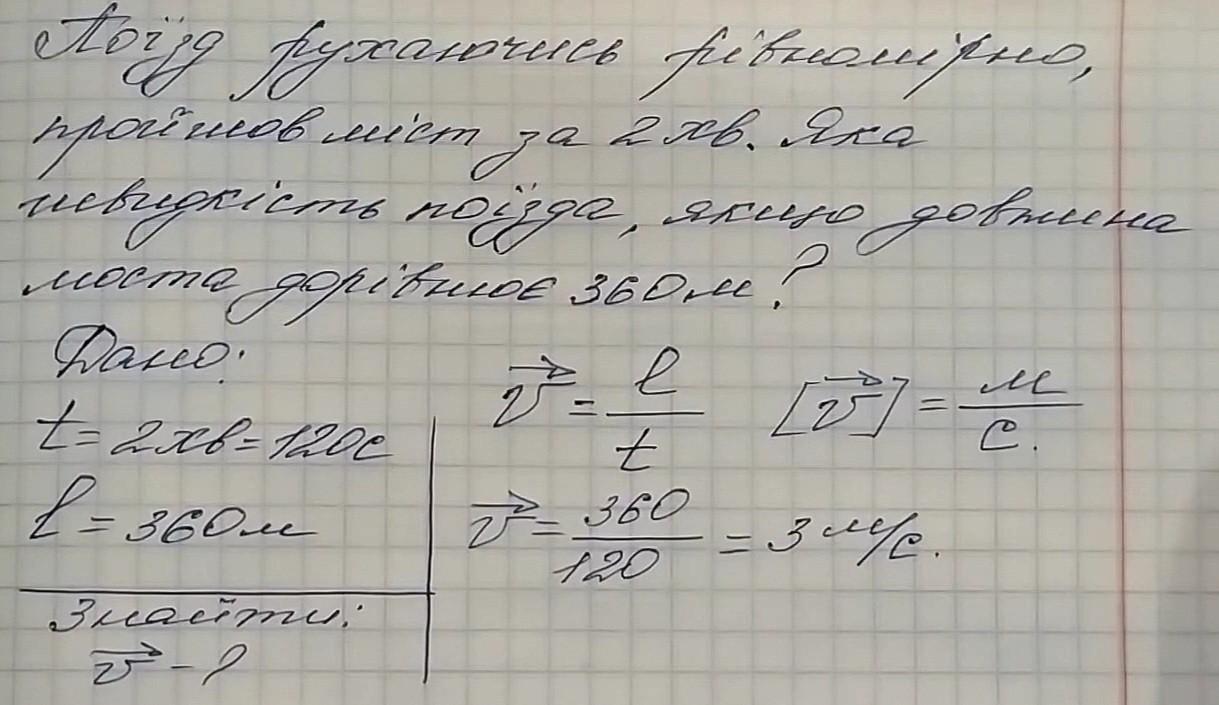 Поїзд рухаючись рівномірно,
пройшов міст за 2 хв. Яка
швидкість поїзда, якщо довжина
моста дорівнює 360 м?
Дано:
t = 2 хв = 120 с
l = 360 м
Знайти:
v⃗ - ?
v⃗ = l/t [v⃗] = м/с.
v⃗ = 360/120 = 3 м/с.